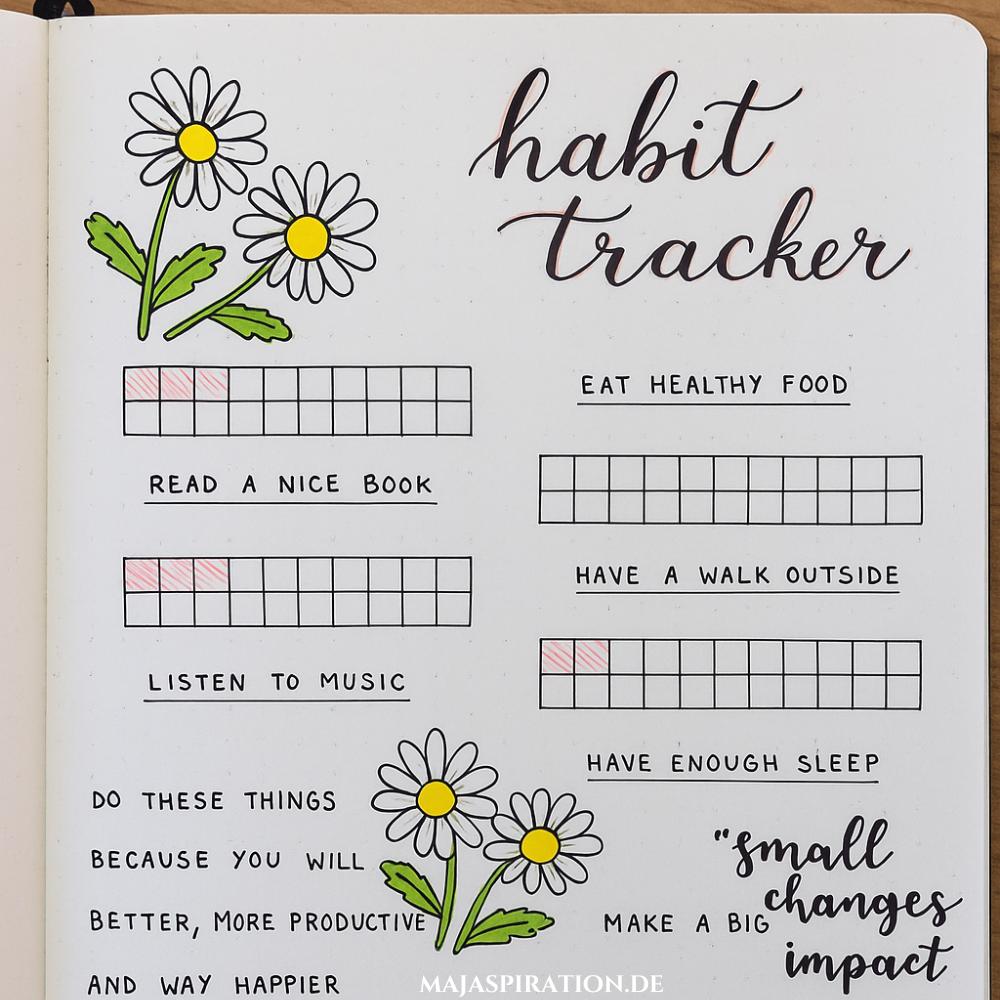 habit
tracker
EAT HEALTHY FOOD
READ A NICE BOOK
HAVE A WALK OUTSIDE
LISTEN TO MUSIC
HAVE ENOUGH SLEEP
DO THESE THINGS
BECAUSE YOU WILL
BETTER, MORE PRODUCTIVE
AND WAY HAPPIER
"small
changes
MAKE A BIG
impact
MAJASPIRATION.DE